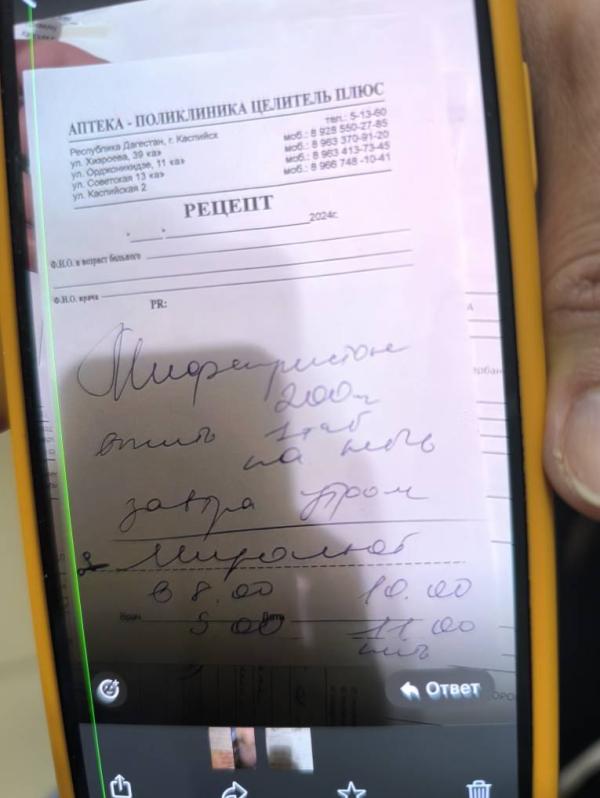 АПТЕКА - ПОЛИКЛИНИКА ЦЕЛИТЕЛЬ ПЛЮС
Республика Дагестан, г. Каспийск
ул. Хизроева, 39 «а»
ул. Орджоникидзе, 11 «а»
ул. Советская 13 «а»
ул. Каспийская 2
тел.: 5-13-60
моб.: 8 928 550-27-85
моб.: 8 963 370-91-20
моб.: 8 963 413-73-45
моб.: 8 966 748 -10-41
РЕЦЕПТ
"____" ____________ 2024г.
Ф.И.О. и возраст больного
Ф.И.О. врача
PR:
Мифепристон
200
1 таб
на ночь
завтра утром
Миролют
в 8.00 10.00
Врач Дата
9 00 11 00
пить
Ответ